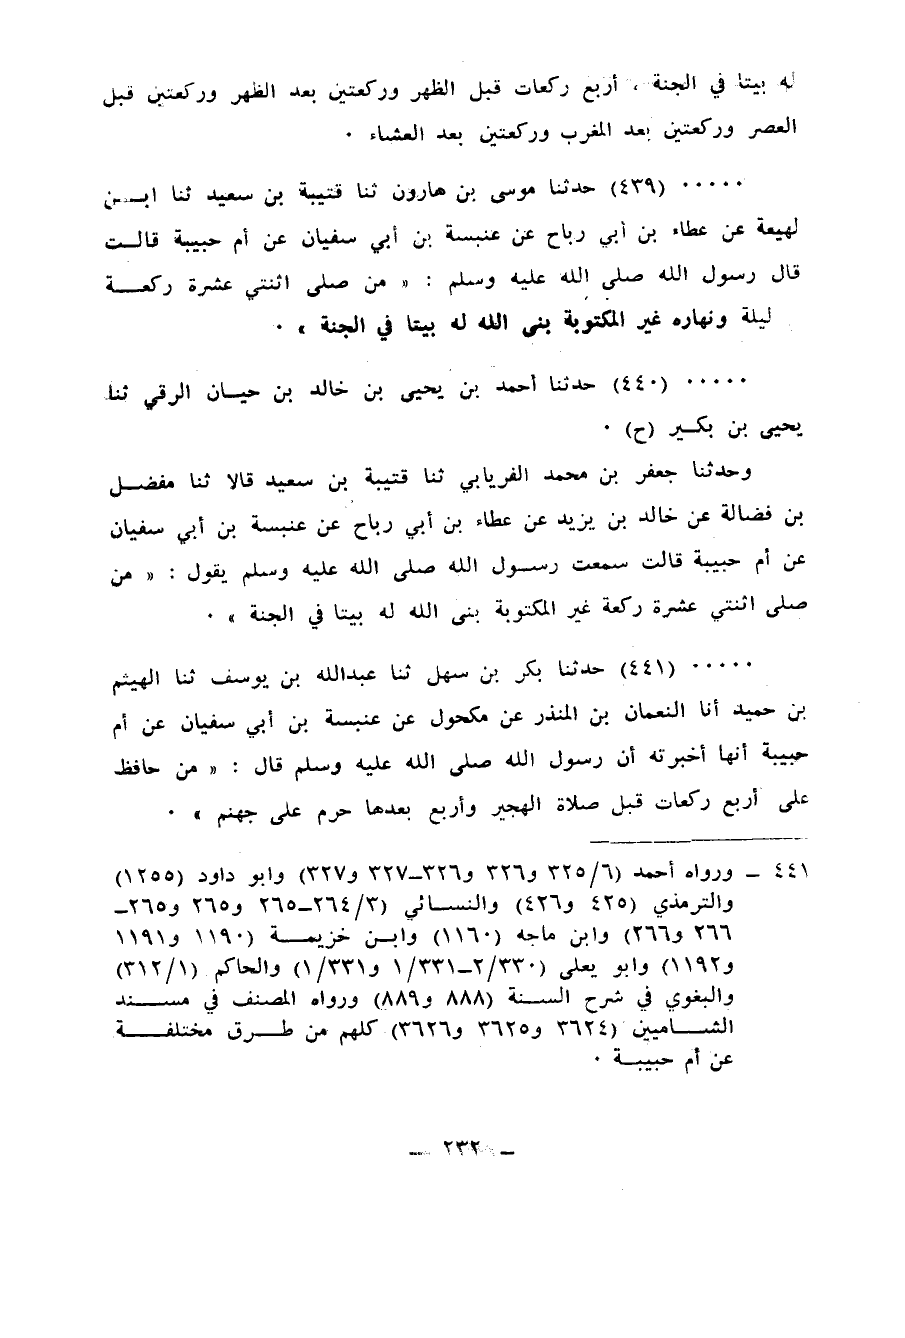 له بيتا في الجنة ، أربع ركعات قبل الظهر وركعتين بعد الظهر وركعتين قبل
العصر وركعتين بعد المغرب وركعتين بعد العشاء ٠
٠٠٠٠٠ (٤٣٩) حدثنا موسى بن هارون ثنا قتيبة بن سعيد ثنا ابــن
لهيعة عن عطاء بن أبي رباح عن عنبسة بن أبي سفيان عن أم حبيبة قالــت
قال رسول الله صلى الله عليه وسلم : « من صلى اثنتي عشرة ركعــة
ليلة ونهاره غير المكتوبة بنى الله له بيتا في الجنة » ٠
٠٠٠٠٠ (٤٤٠) حدثنا أحمد بن يحيى بن خالد بن حيــان الرقي ثنا
يحيى بن بكــير (ح) ٠
وحدثنا جعفر بن محمد الفريابي ثنا قتيبة بن سعيد قالا ثنا مفضــل
بن فضالة عن خالد بن يزيد عن عطاء بن أبي رباح عن عنبسة بن أبي سفيان
عن أم حبيبة قالت سمعت رســول الله صلى الله عليه وسلم يقول : « من
صلى اثنتي عشرة ركعة غير المكتوبة بنى الله له بيتا في الجنة » ٠
٠٠٠٠٠ (٤٤١) حدثنا بكر بن سهل ثنا عبدالله بن يوسف ثنا الهيثم
بن حميد أنا النعمان بن المنذر عن مكحول عن عنبسة بن أبي سفيان عن أم
حبيبة أنها أخبرته أن رسول الله صلى الله عليه وسلم قال : « من حافظ
على أربع ركعات قبل صلاة الهجير وأربع بعدها حرم على جهنم » ٠
٤٤١ ــ ورواه أحمد (٣٢٥/٦ و٣٢٦ و٣٢٦ــ٣٢٧ و٣٢٧) وابو داود (١٢٥٥)
والترمذي (٤٢٥ و٤٢٦) والنســائي (٢٦٤/٣ــ٢٦٥ و٢٦٥ و٢٦٥ــ
٢٦٦ و٢٦٦) وابن ماجه (١١٦٠) وابــن خزيمــة (١١٩٠ و١١٩١
و١١٩٢) وابو يعلى (٢/٣٣٠ــ١/٣٣١ و١/٣٣١) والحاكم (٣١٢/١)
والبغوي في شرح الســنة (٨٨٨ و٨٨٩) ورواه المصنف في مســند
الشــاميين (٣٦٢٤ و٣٦٢٥ و٣٦٢٦) كلهم من طــرق مختلفــة
عن أم حبيبــة ٠
ــ ٢٣٢ ــ